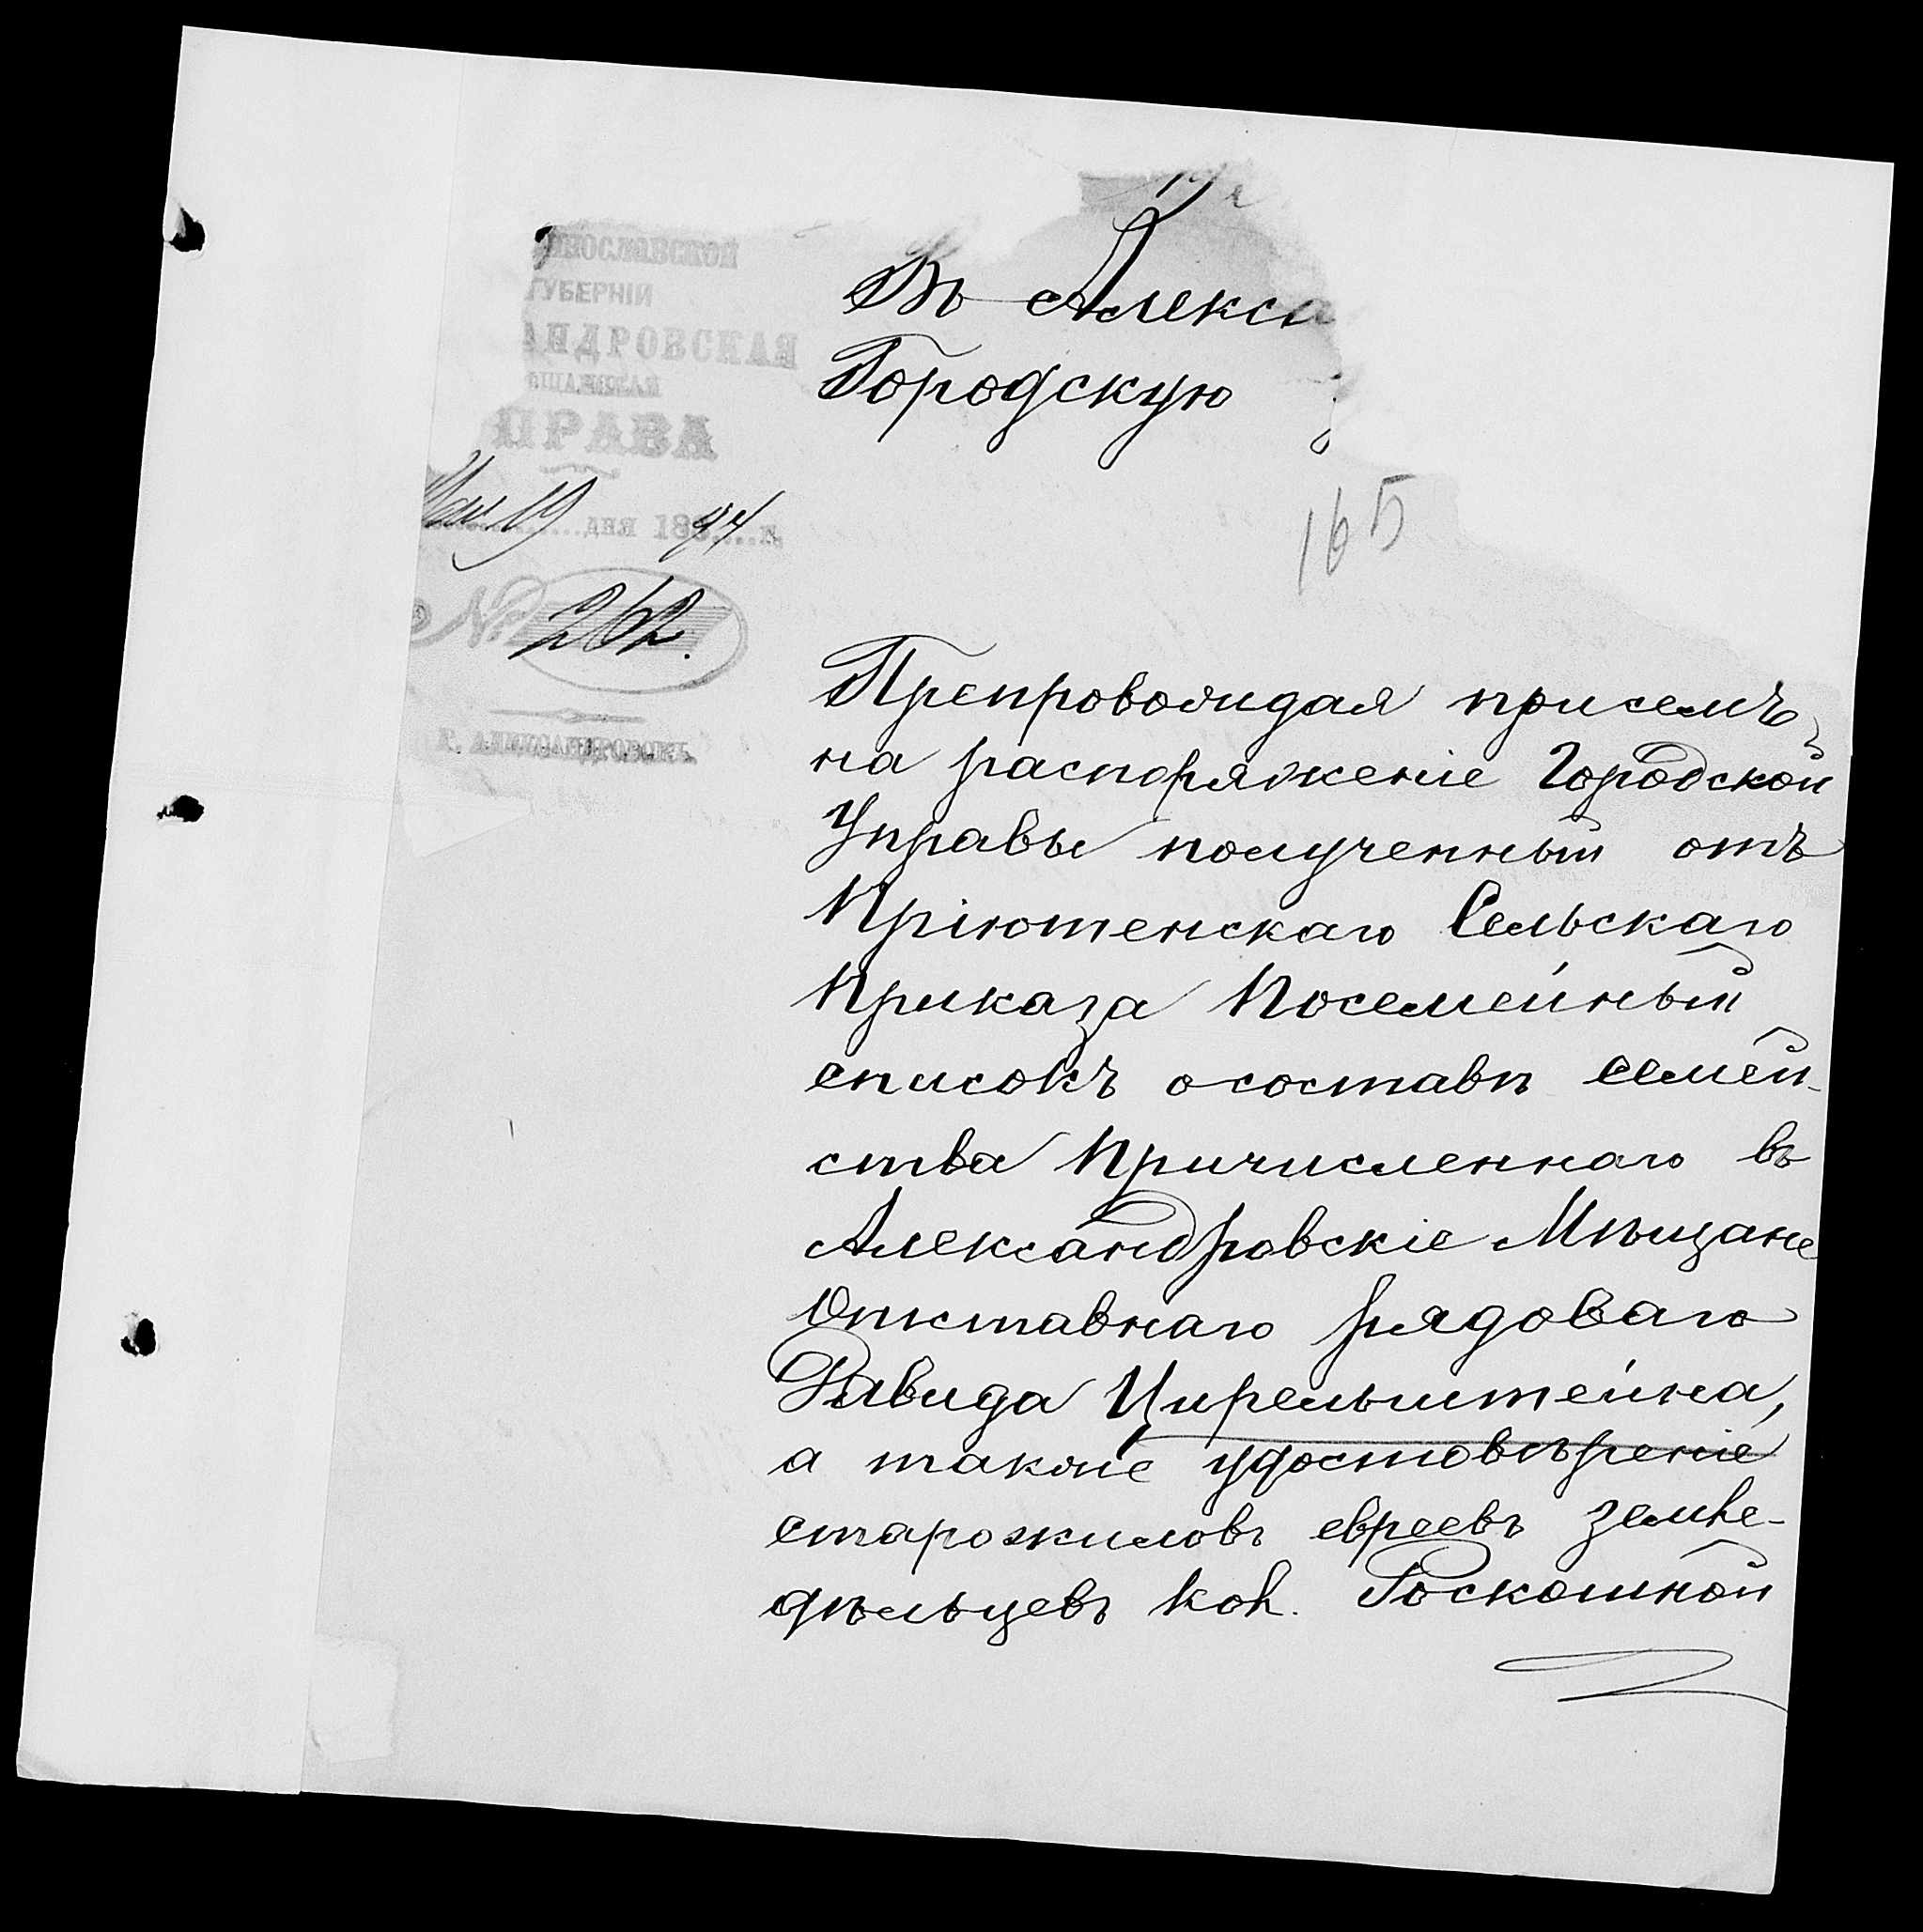 ИНОСЛАВСКОЙ
ГУБЕРНІИ
АНДРОВСКАЯ
ЩАНСКАЯ
ПРАВА
Мая 19 дня 1894 г.
№ 262.
Г. АЛЕКСАНДРОВСКЪ.
Въ Алекса
Городскую
165
Препровождая присемъ
на распоряженіе Городской
Управы полученный отъ
Пріютенскаго Сельскаго
Приказа Посемейный
списокъ о составѣ семей-
ства Причисленнаго въ
Александровскіе Мѣщане
Отставнаго рядоваго
Давида Цирельштейна,
а также удостовѣреніе
старожиловъ евреевъ земле-
дѣльцевъ кол. Роскошной